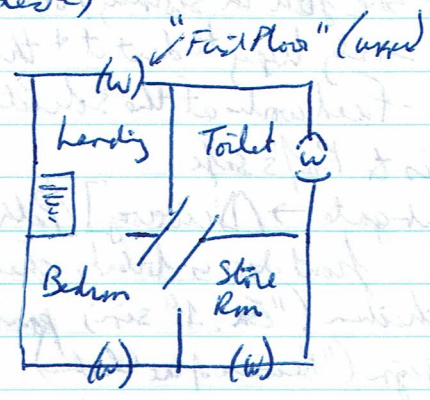 "First Floor" (upper
(W)
Landing Toilet
W
Bedrm Store
Rm
(W) (W)